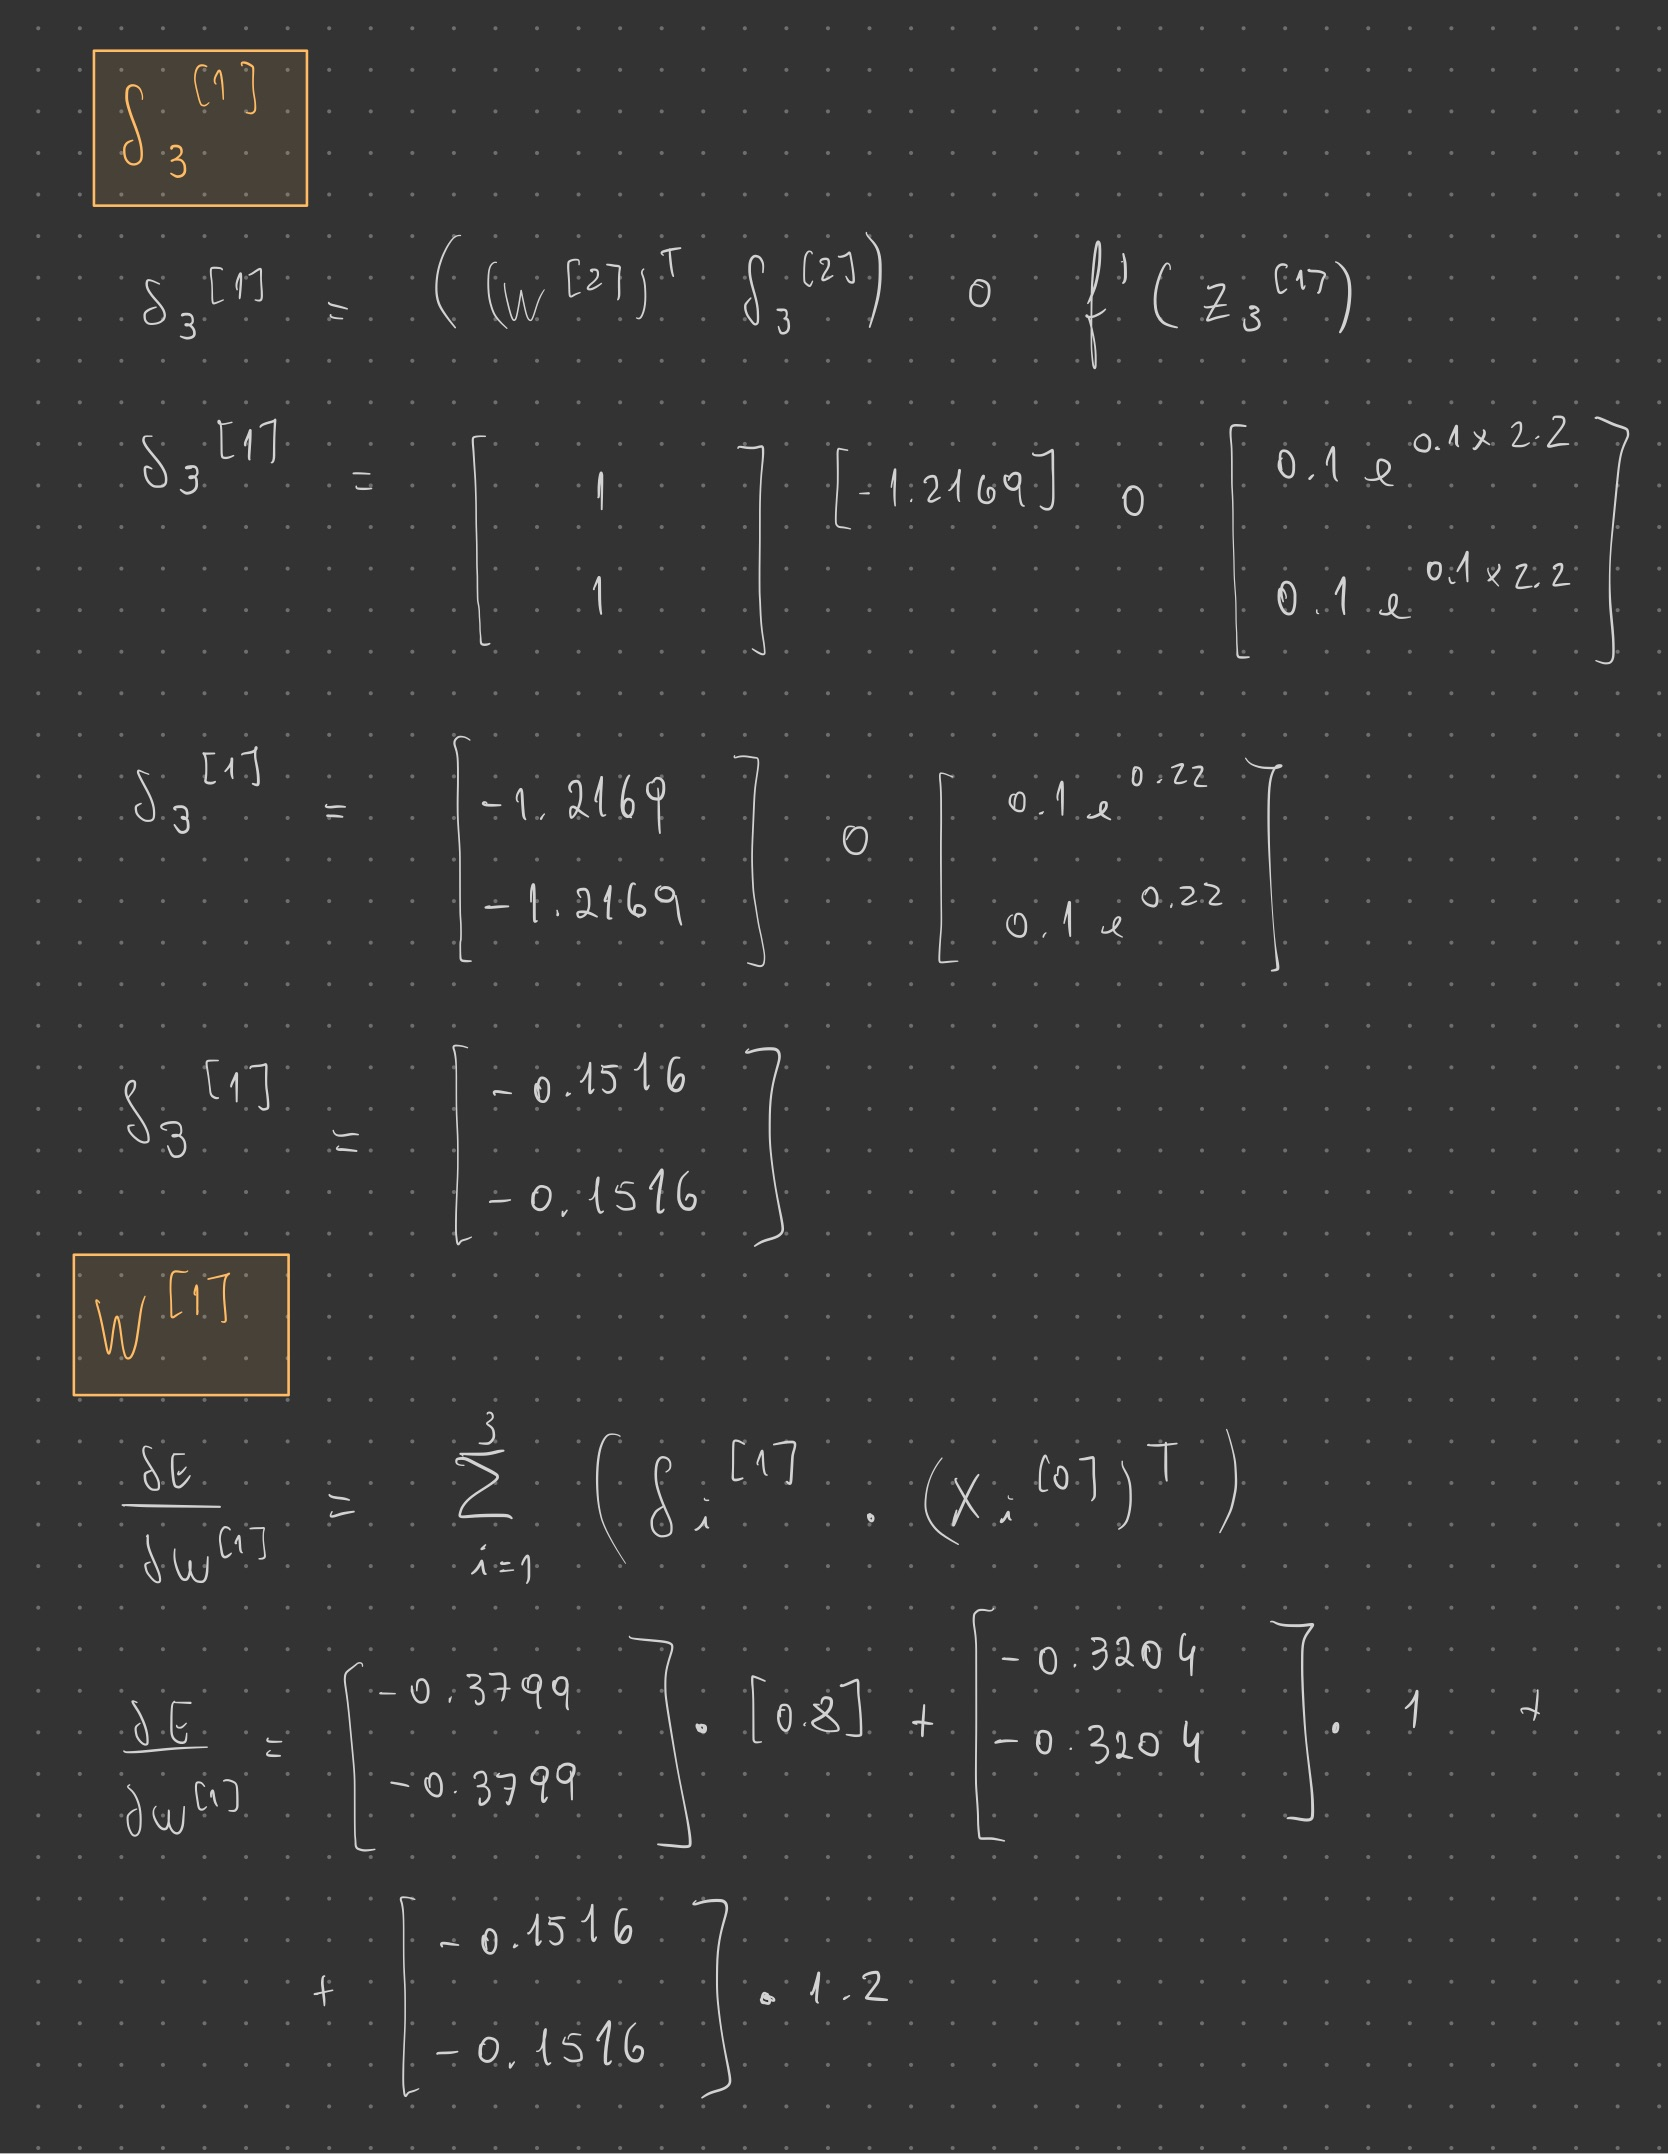 δ₃^[1]
δ₃^[1] = ((W^[2])^T δ₃^[2]) ∘ f'(z₃^[1])
δ₃^[1] = [1 ; 1] [-1.2169] ∘ [0.1 e^(0.1 x 2.2) ; 0.1 e^(0.1 x 2.2)]
δ₃^[1] = [-1.2169 ; -1.2169] ∘ [0.1 e^0.22 ; 0.1 e^0.22]
δ₃^[1] = [-0.1516 ; -0.1516]
W^[1]
∂E/∂w^[1] = Σ_{i=1}^{3} (δ_i^[1] . (x_i^[0])^T)
∂E/∂w^[1] = [-0.3799 ; -0.3799] . [0.8] + [-0.3204 ; -0.3204] . 1 +
+ [-0.1516 ; -0.1516] . 1.2